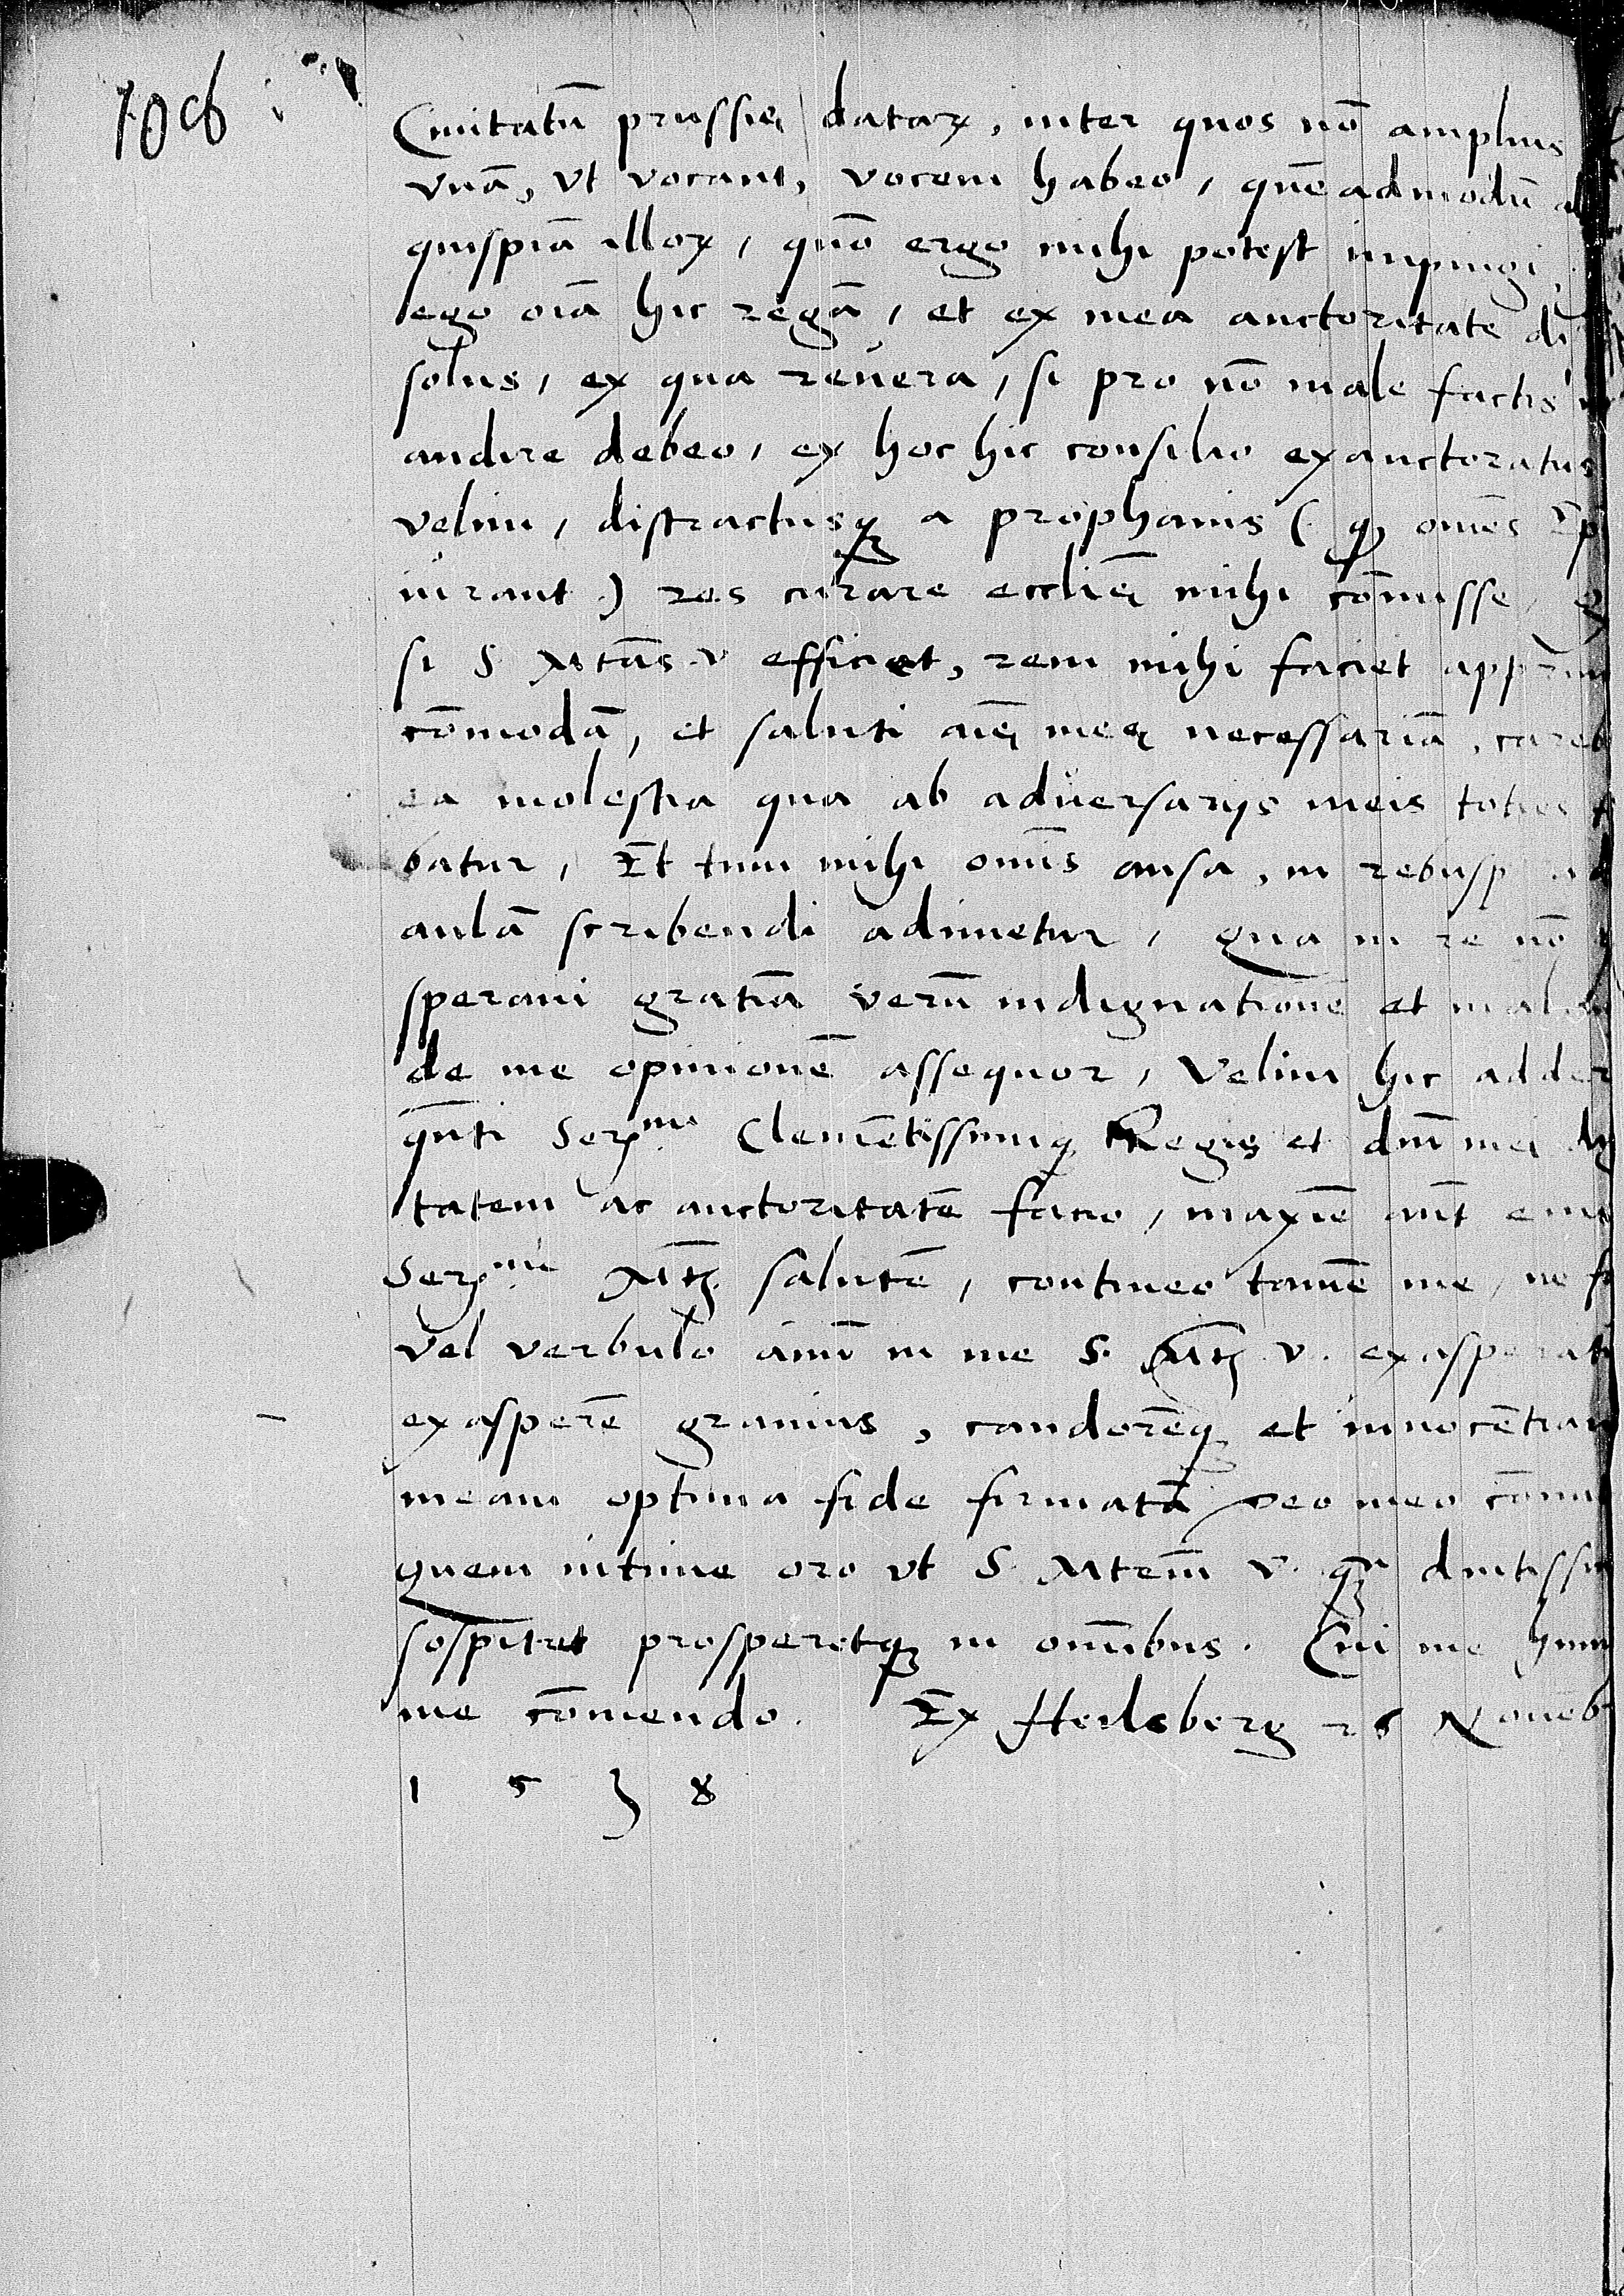 106
Ciuitatũ prussię datarꝝ, inter quos nõ amplius
vnã, vt vocant, vocem habeo, quẽadmodũ
quispiã illorꝝ, quõ ergo mihi potest impingi
ego oĩa hic regã, et ex mea auctoritate
solus, ex qua reuera, si pro nõ male factis
audire debeo, ex hoc hic consilio exauctoratus
velim, distractusq̃ a prophanis ( omẽs
iurant ) res curare eccliẽ mihi cõmisse,
si S Mtãs v efficiet, rem mihi faciet
cõmodã, et saluti aĩę meę necessariã,
ea molestia qua ab aduersarijs meis toties
batur, Et tum mihi omĩs ansa, in rebusp
aulã scribendi adimetur, qua in re nõ
speraui gratiã verũ indignationẽ et
de me opinionẽ assequor, Velim hic adder
quãti Serᵐⁱ Clemẽtissimiq̃ Regis et dñi mei
tatem ac auctoritatẽ facio, maxiẽ aũt
Serᵐᵉ Mtis salutẽ, contineo tamẽ me, ne
vel verbulo aĩm in me S. Mtis v.
exasperẽ grauius, candorẽq̃ et innocẽtiam
meam optima fide firmatã Deo meo
quem intime oro vt S. Mtem̃ v. diutissi
sospitet prosperetq̃ in omnibus. Cui me
me cõmendo. Ex Heilsberg 26 Nouẽb
1 5 3 8